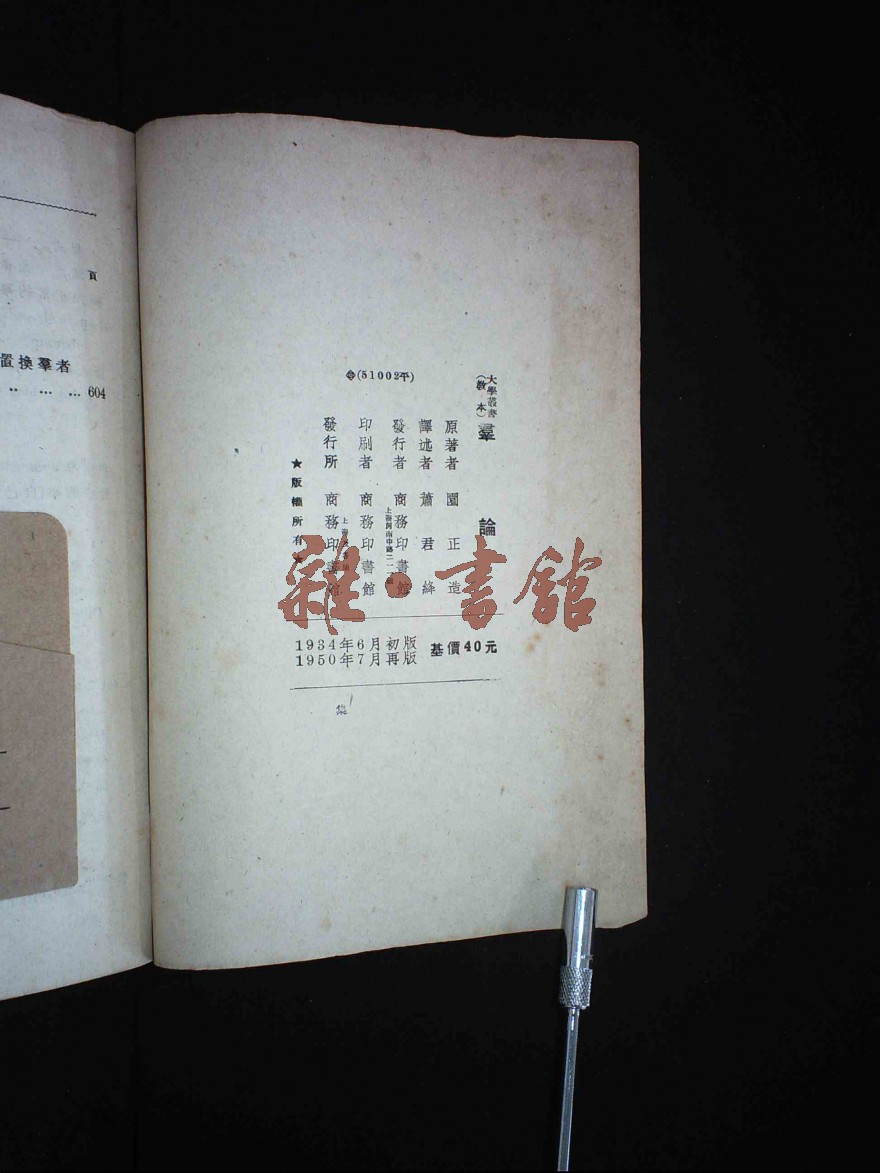 頁
置換羣者
604
(51002平)
大學叢書
(教本)
羣論
原著者 園正造
譯述者 蕭君絳
發行者 商務印書館
上海河南中路二一一號
印刷者 商務印書館
發行所 商務印書館
★版權所有★
1934年6月初版
1950年7月再版
基價40元
雜·書館